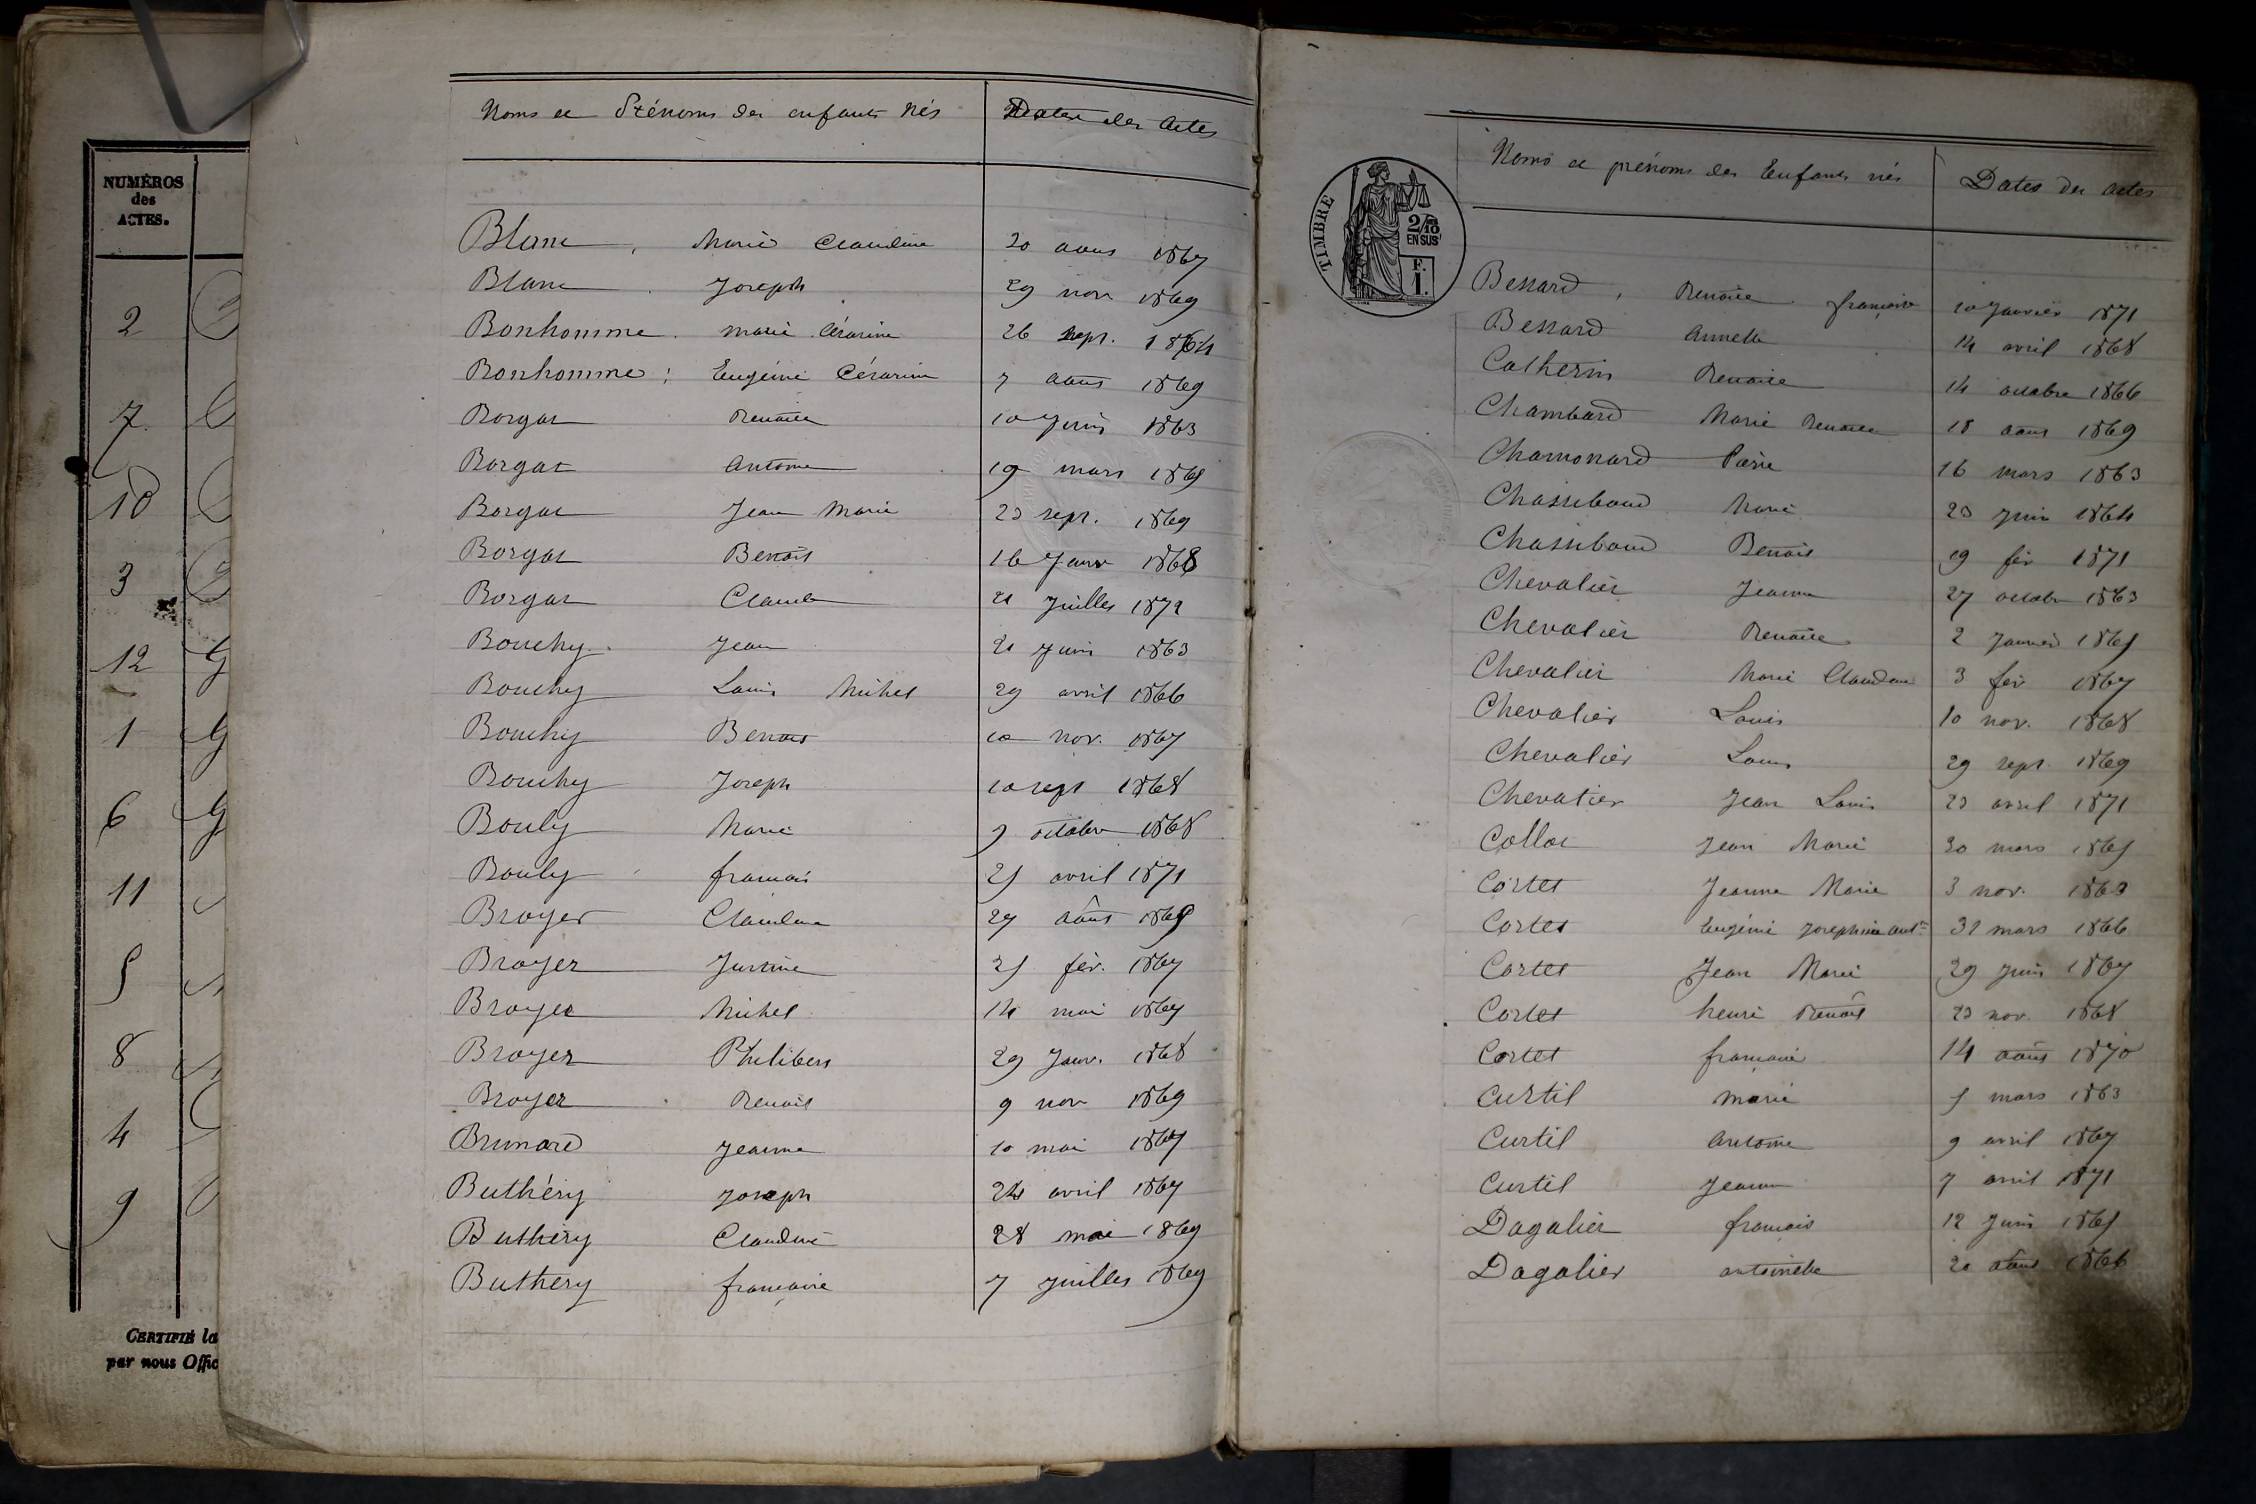 NUMÉROS
des
ACTES.
2
7
10
3
12
1
6
11
5
8
4
9
CERTIFIÉ la
par nous Offic
Noms et Prénoms des enfants nés Dates des Actes
Blanc Marie Claudine 20 aout 1867
Blanc Joseph 29 nov 1869
Bonhomme marie Césarine 26 sept. 1864
Bonhomme Eugénie Césarine 7 août 1869
Borgat Benoite 10 Juin 1863
Borgat Antoine 19 mars 1865
Borgat Jean Marie 23 sept. 1869
Borgat Benoit 16 Janv 1868
Borgat Claude 21 Juillet 1872
Bouchy Jean 21 Juin 1863
Bouchy Louis Michel 29 avril 1866
Bouchy Benoit 10 nov. 1867
Bouchy Joseph 10 sept 1868
Bouly Marie 9 octobre 1868
Bouly francois 25 avril 1871
Broyer Claudine 27 août 1865
Broyer Justine 25 fév. 1867
Broyer Michel 14 mai 1867
Broyer Philibert 29 Janv. 1868
Broyer Benoit 9 nov 1869
Brunard Jeanne 10 mai 1867
Buthéry Joseph 24 avril 1867
Buthéry Claudine 28 mai 1869
Buthéry françoise 7 Juillet 1869
TIMBRE
2/10
EN SUS
F.
1.
Noms et prénoms des Enfants nés Dates des actes
Bessard, Benoite françoise 10 Janvier 1871
Bessard Annette 14 avril 1868
Catherin Benoite 14 octobre 1866
Chambard Marie Benoite 18 aout 1869
Chamonard Pierre 16 mars 1863
Chassibout Marie 23 Juin 1864
Chassibout Benoit 19 fév 1871
Chevalier Jeanne 27 octobre 1863
Chevalier Benoite 2 Janvier 1865
Chevalier Marie Claudine 3 fév 1867
Chevalier Louis 10 nov. 1868
Chevalier Louis 29 sept. 1869
Chevalier Jean Louis 23 avril 1871
Collot Jean Marie 30 mars 1865
Cortet Jeanne Marie 3 nov. 1863
Cortet Eugénie Josephine antte 31 mars 1866
Cortet Jean Marie 29 Juin 1867
Cortet henri Benoit 23 nov. 1868
Cortet francoise 14 août 1870
Curtil marie 5 mars 1863
Curtil Antoine 9 avril 1867
Curtil Jeanne 7 avril 1871
Dagalier francois 12 Juin 1865
Dagalier antoinette 20 août 1866